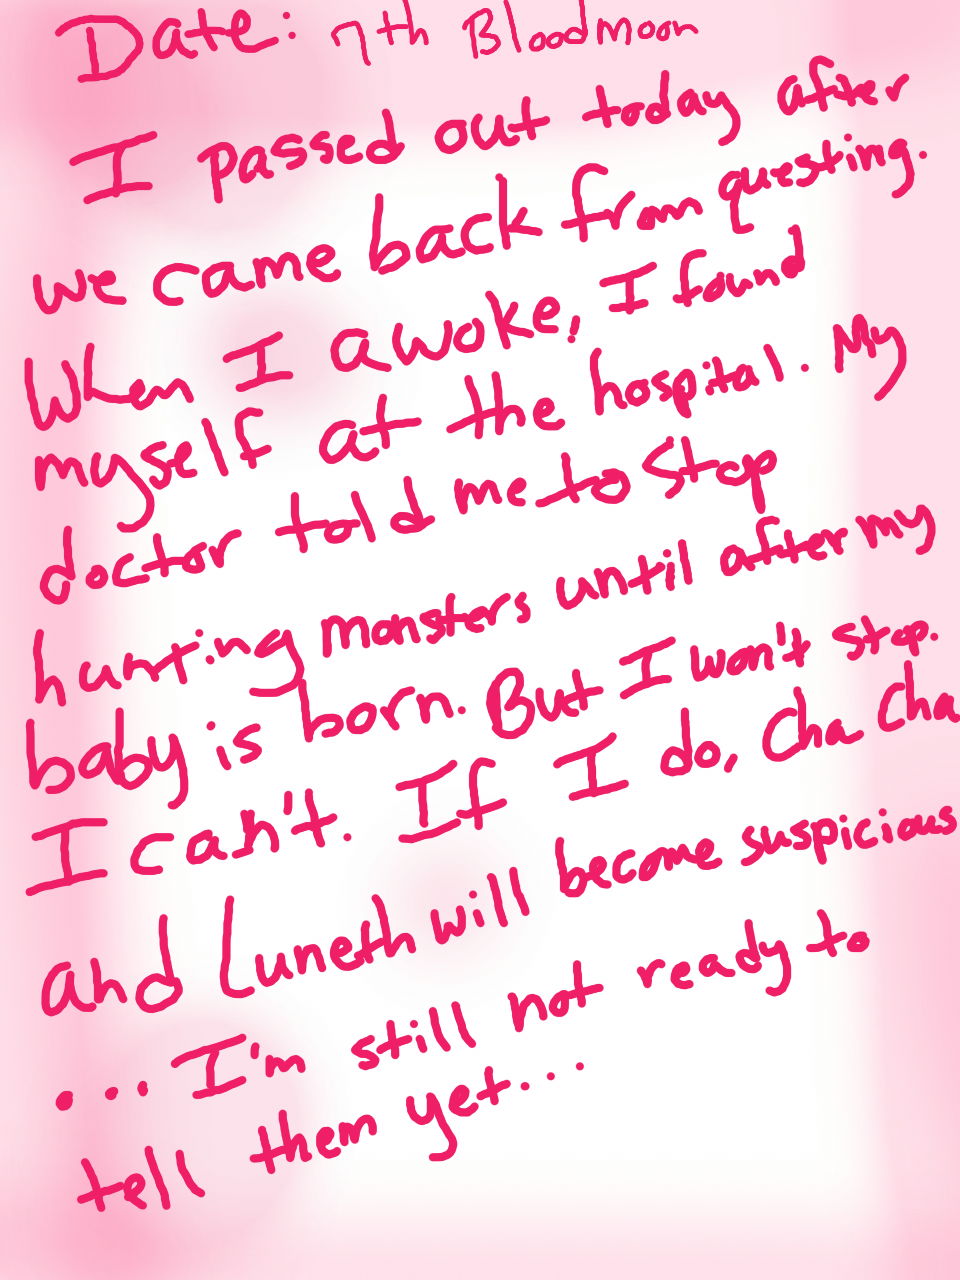 Date: 7th Bloodmoon
I passed out today after
we came back from questing.
When I awoke, I found
myself at the hospital. My
doctor told me to stop
hunting monsters until after my
baby is born. But I won't stop.
I can't. If I do, Cha Cha
and Luneth will become suspicious
... I'm still not ready to
tell them yet...